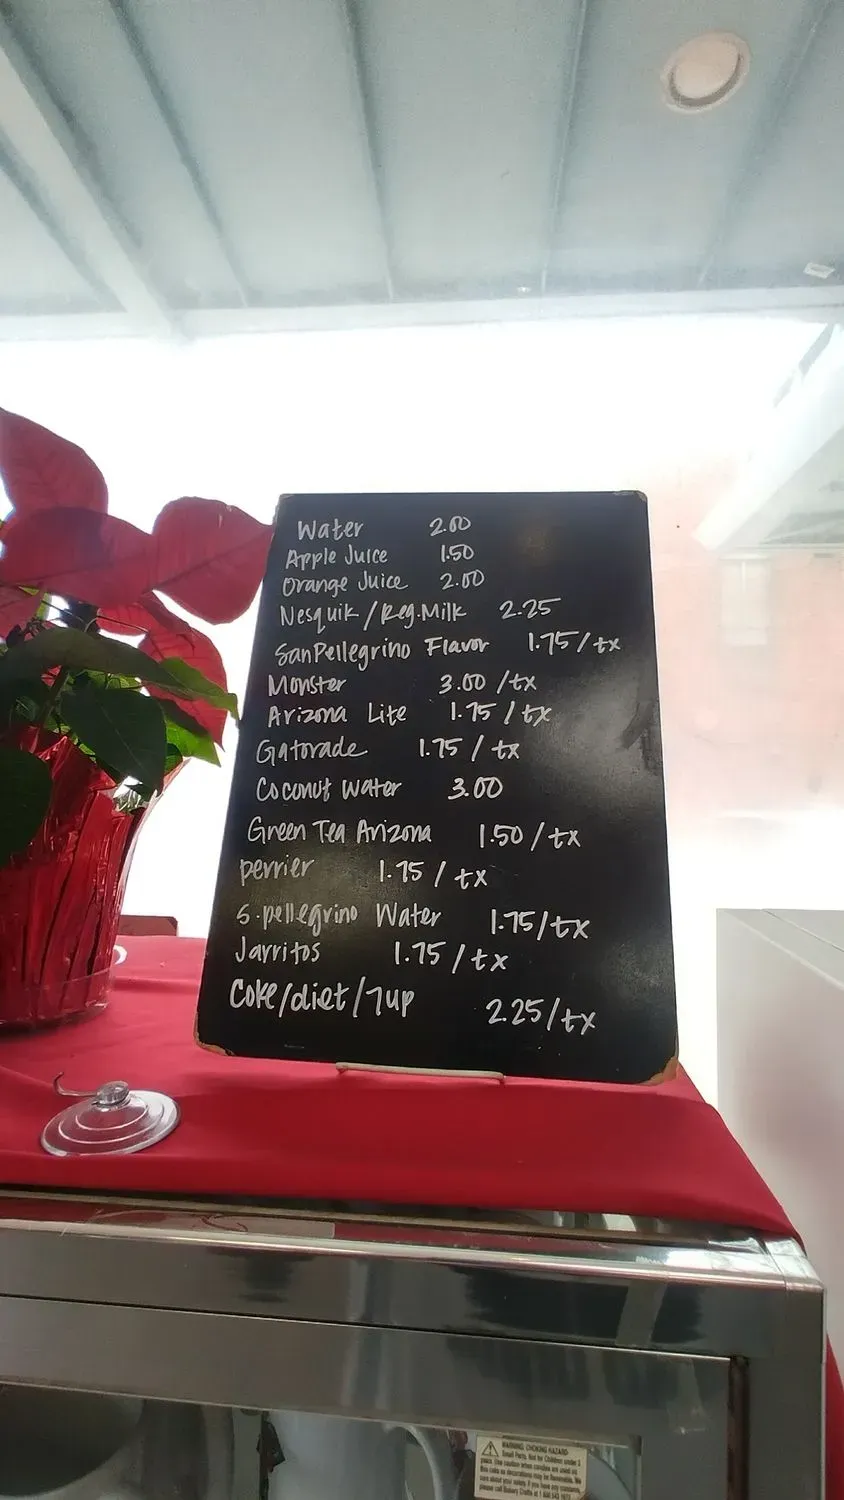 Water 2.00
Apple Juice 1.50
Orange Juice 2.00
Nesquik/Reg.Milk 2.25
SanPellegrino Flavor 1.75/tx
Monster 3.00/tx
Arizona Lite 1.75/tx
Gatorade 1.75/tx
Coconut Water 3.00
Green Tea Arizona 1.50/tx
perrier 1.75/tx
S.pellegrino Water 1.75/tx
Jarritos 1.75/tx
Coke/diet/7up 2.25/tx
WARNING, CHOKING HAZARD-
Small Parts. Not for Children under 3